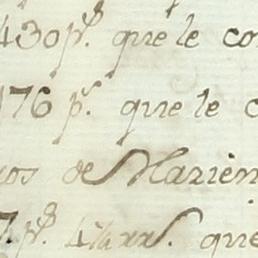 430 p.s que le co
176 p.s que le c
cos de Marien
7. p.s 4½ rr.s que